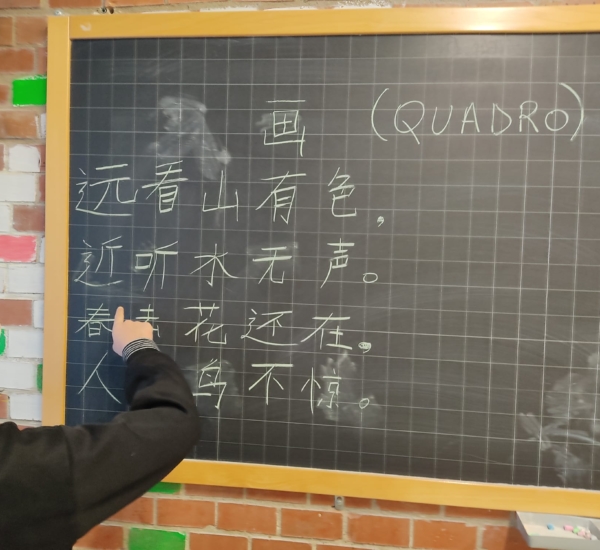 画 (QUADRO)
远看山有色,
近听水无声。
春去花还在。
人 鸟不惊。